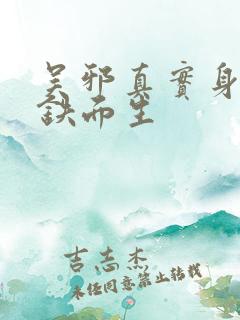 吴邪真實身
鈌而生
吉志杰
未经同意禁止转载